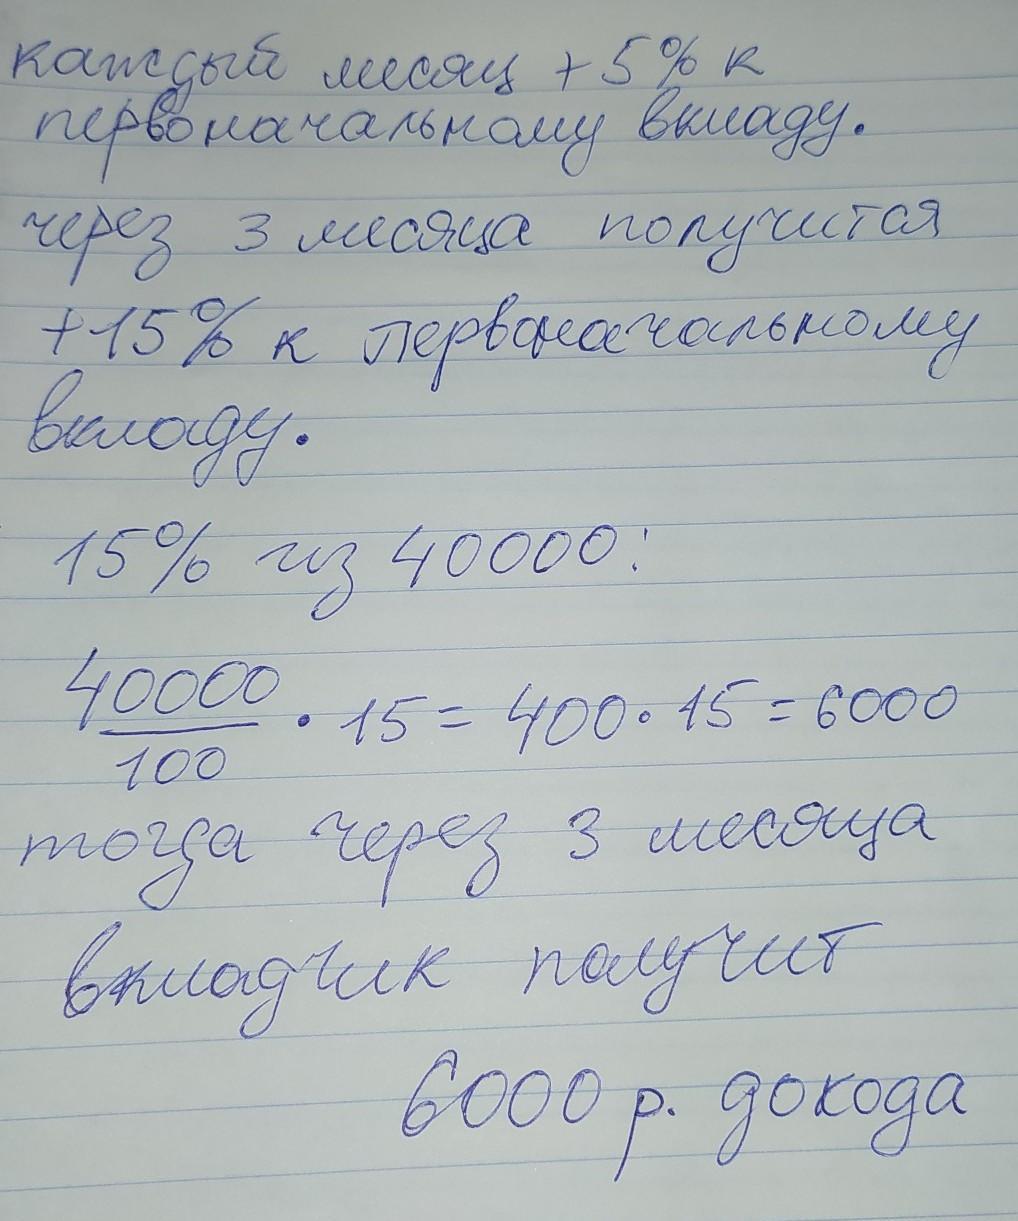 каждый месяц +5% к
первоначальному вкладу.
через 3 месяца получится
+15% к первоначальному
вкладу.
15% из 40000:
40000/100 · 15 = 400 · 15 = 6000
тогда через 3 месяца
вкладчик получит
6000 р. дохода